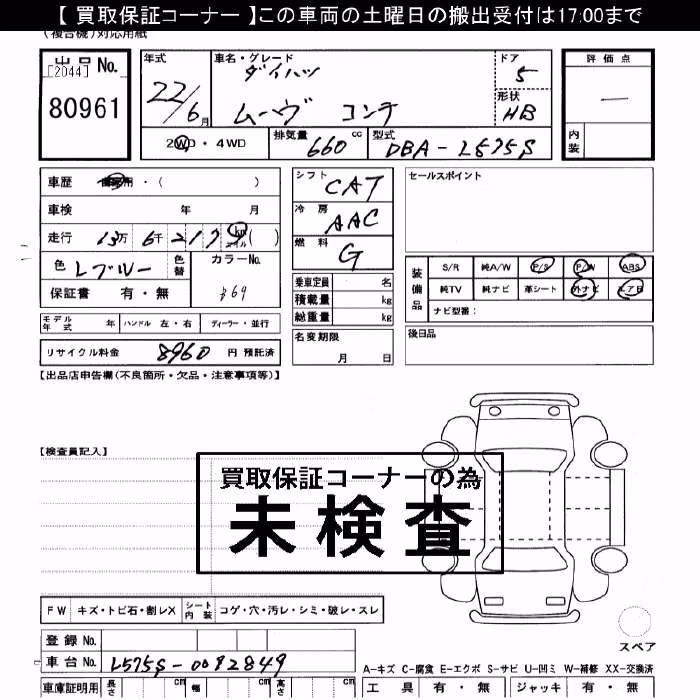 【 買取保証コーナー 】この車両の土曜日の搬出受付は17:00まで
(複合機)対応用紙
出品 No.
[2044]
80961
年式
22/6月
車名・グレード
ダイハツ
ムーヴ コンテ
ドア
5
形状
HB
評価点
—
内装
2WD・4WD
排気量 660 cc
型式 DBA-L575S
車歴 自家用・( )
車検 年 月
走行 13万 6千 217 km マイル ( )
色 Lブルー
色替
カラーNo.
保証書 有・無
シフト CAT
冷房 AAC
燃料 G
乗車定員 名
積載量 kg
総重量 kg
セールスポイント
装備品
S/R 純A/W P/S P/W ABS
純TV 純ナビ 革シート 外ナビ エアB
ナビ型番：
モデル年式 年 ハンドル 左・右 ディーラー・並行
リサイクル料金 8960 円 預託済
名変期限
月 日
後日品
【出品店申告欄(不良箇所・欠品・注意事項等)】
【検査員記入】
買取保証コーナーの為
未検査
FW キズ・トビ石・割レX シート内装 コゲ・穴・汚レ・シミ・破レ・スレ
スペア
登録 No.
車台 No. L575S-0082849
A-キズ C-腐食 E-エクボ S-サビ U-凹ミ W-補修 XX-交換済
車庫証明用 長さ cm 幅 cm 高さ cm
工具 有・無 ジャッキ 有・無